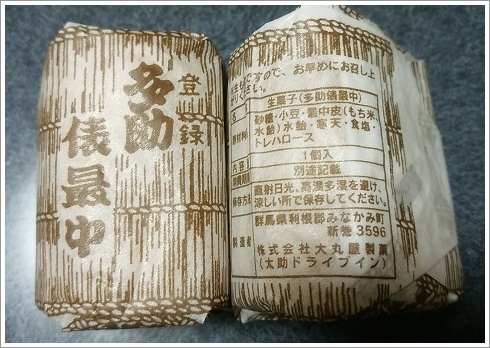 登録
多助
俵最中
ものですので、お早めにお召し上
ください。
名
生菓子(多助俵最中)
砂糖・小豆・最中皮(もち米、
水飴)水飴・寒天・食塩・
トレハロース
内容
1個入
別途記載
保存方法
直射日光、高温多湿を避け、
涼しい所で保存してください。
製造者
群馬県利根郡みなかみ町
新巻3596
株式会社大丸屋製菓
(太助ドライブイン)